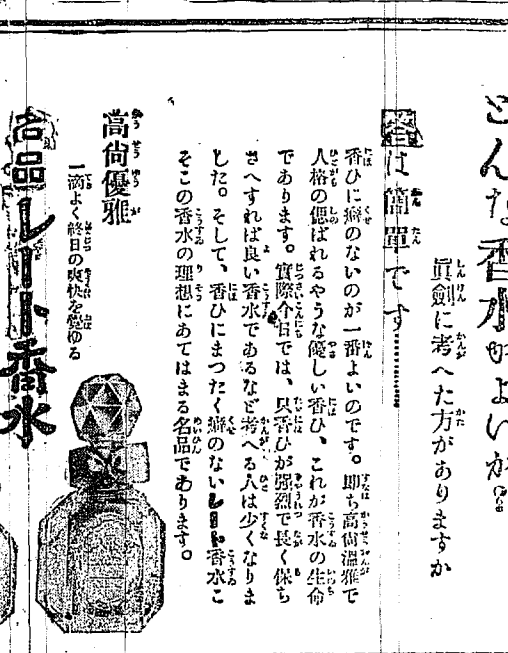 どんな香水がよいか？
眞劍に考へた方がありますか
答は簡單です…………
香ひに癖のないのが一番よいのです。卽ち高尙溫雅で
人格の偲ばれるやうな優しい香ひ、これが香水の生命
であります。實際今日では、只香ひが强烈で長く保ち
さへすれば良い香水であるなど考へる人は少くなりま
した。そして、香ひにまつたく癖のないレート香水こ
そこの香水の理想にあてはまる名品であります。
高尙優雅
一滴よく終日の爽快を覺ゆる
名品レート香水